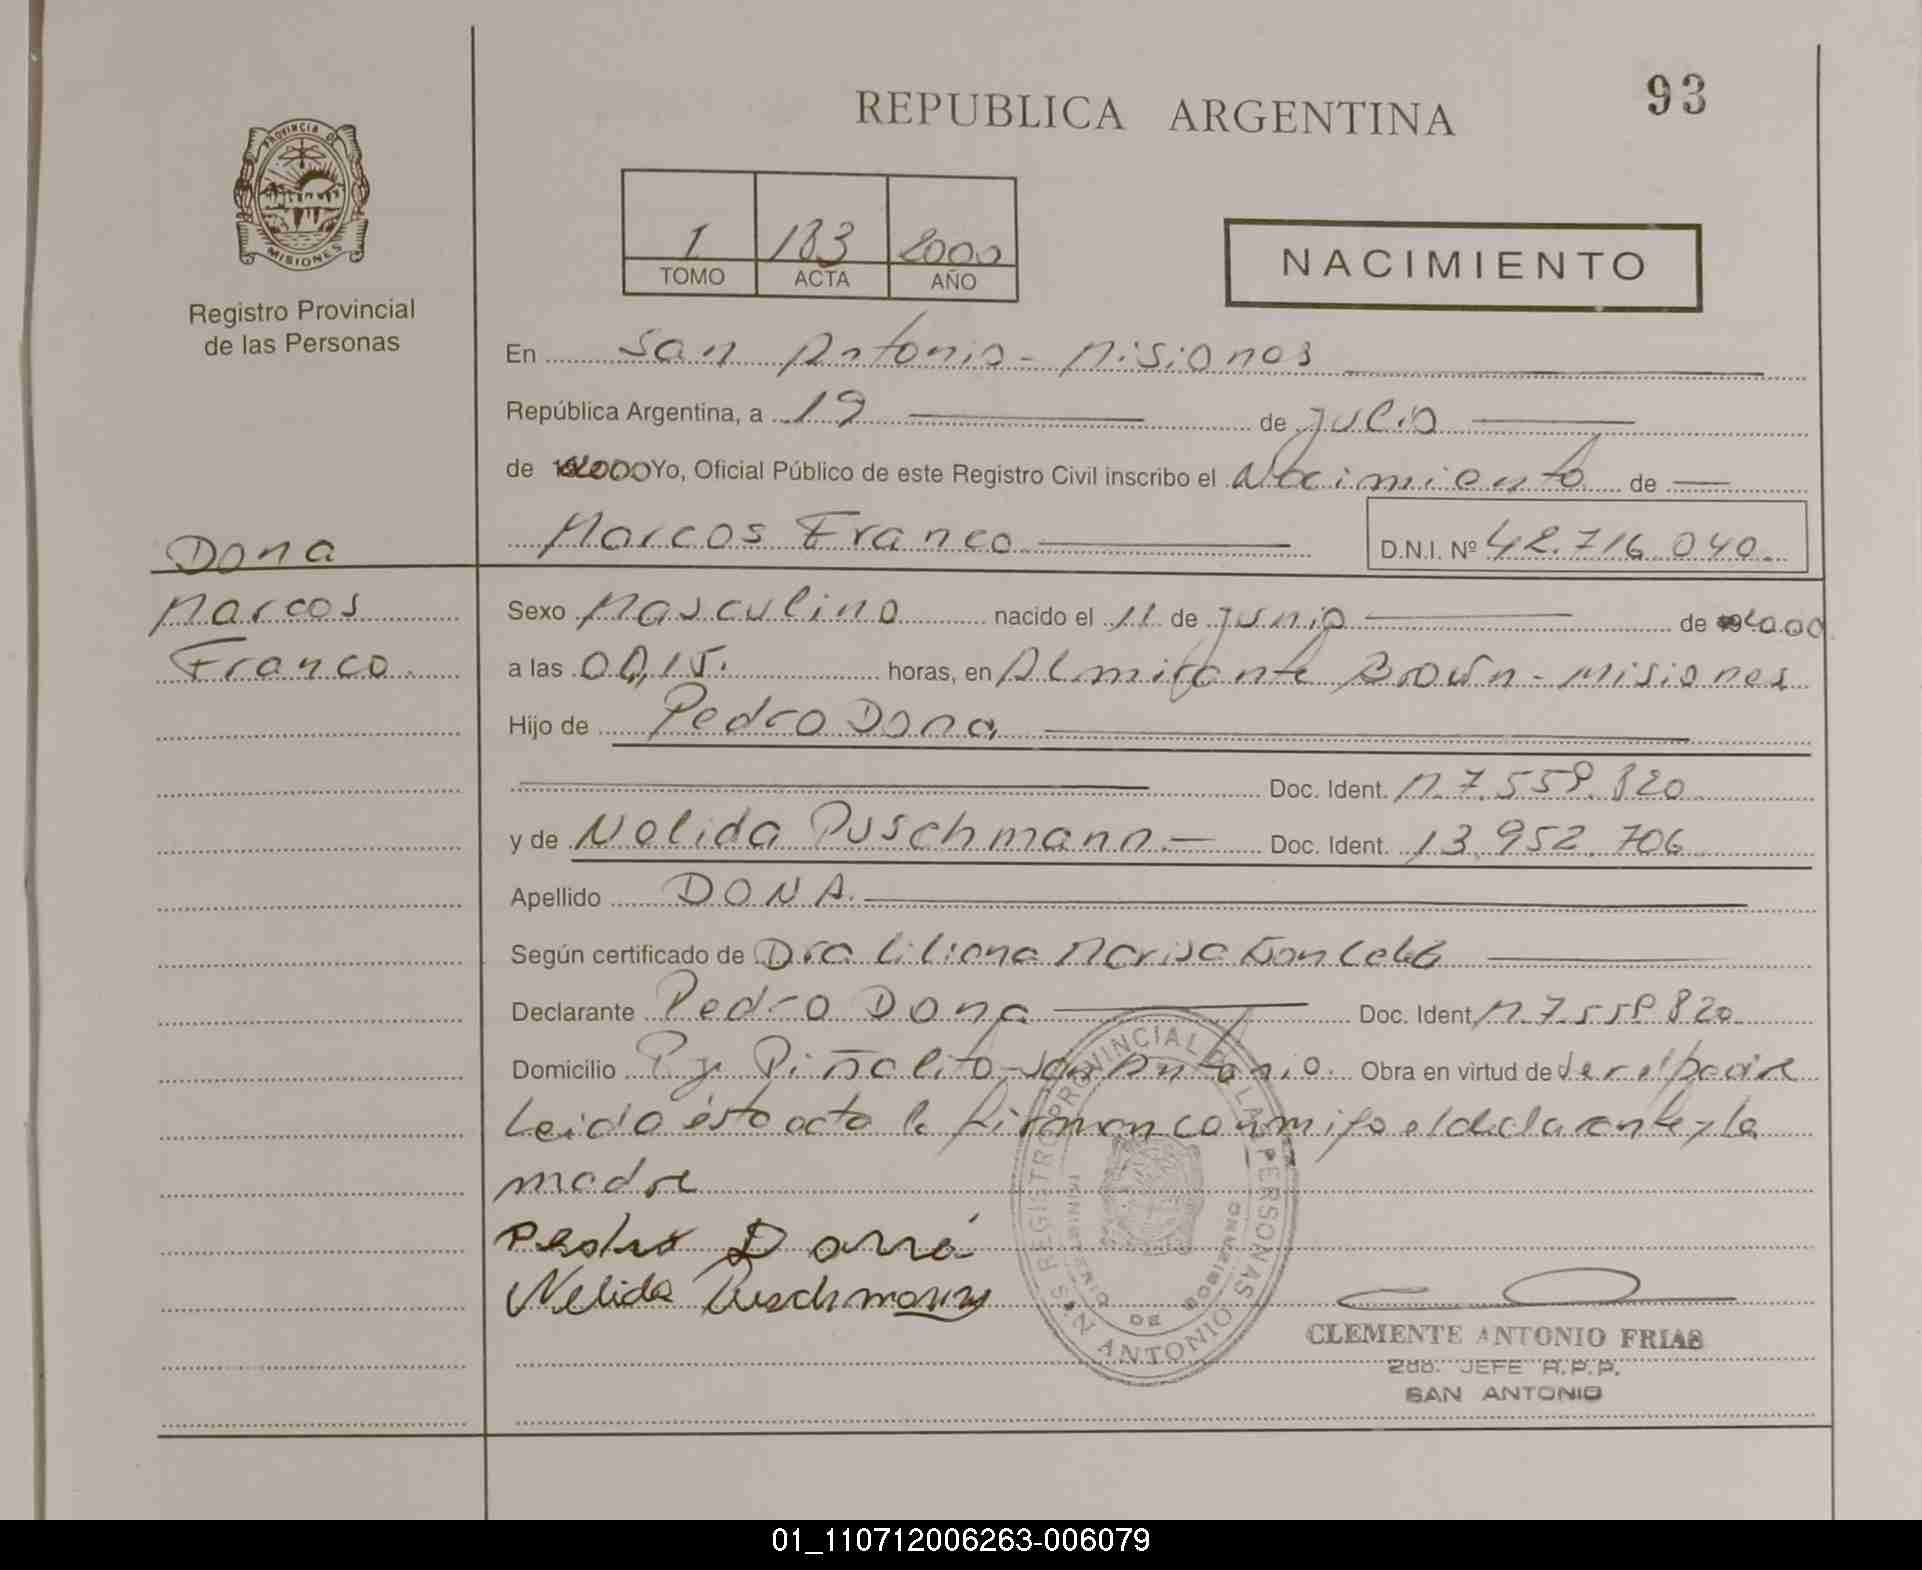 93
REPUBLICA ARGENTINA
PROVINCIA DE
MISIONES
Registro Provincial
de las Personas
1 183 2000
TOMO ACTA AÑO
NACIMIENTO
En San Antonio - Misiones
República Argentina, a 19 de julio
de 2000 Yo, Oficial Público de este Registro Civil inscribo el Nacimiento de
Marcos Franco D.N.I. Nº 42.716.040.
Dona
Marcos
Franco.
Sexo Masculino nacido el 11 de junio de 2000
a las 00,15. horas, en Almirante Brown - Misiones
Hijo de Pedro Dona
Doc. Ident. M.7.559.820
y de Nelida Puschmann.- Doc. Ident. 13.952.706
Apellido DONA.
Según certificado de Dra Liliana Marisa
Declarante Pedro Dona Doc. Ident. M.7.559.820
Domicilio Pje Piñalito - San Antonio. Obra en virtud de ser el padre
Leida ésta acta la firman conmigo el declarante y la
madre
Pedro Dona
Nelida Puschmann
REGISTRO PROVINCIAL DE LAS PERSONAS
MINISTERIO DE GOBIERNO
SAN ANTONIO
CLEMENTE ANTONIO FRIAS
JEFE R.P.P.
SAN ANTONIO
01_110712006263-006079